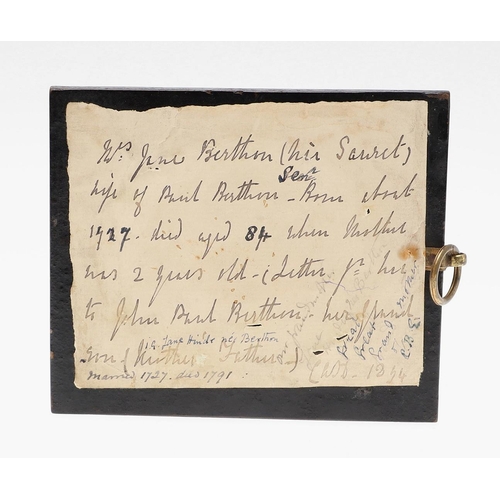 Mrs Jane Berthon (née Sauret)
Senr
wife of Paul Berthon - Born about
1727 - died aged 84 when Mother
was 2 years old - (Letter fm her
to John Paul Berthon - her Grand
i.e. Jane Hinds née Berthon
son (Mother's Father -)
married 1727. died 1791.
Great
Great
Grand Mother
C.R.E.